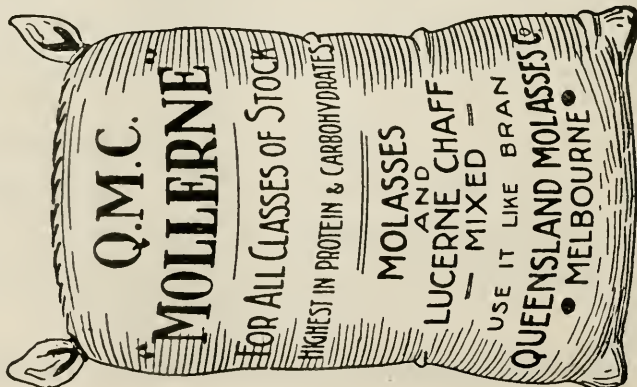 Q.M.C.
"MOLLERNE"
FOR ALL CLASSES OF STOCK
HIGHEST IN PROTEIN & CARBOHYDRATES
MOLASSES
AND
LUCERNE CHAFF
— MIXED —
USE IT LIKE BRAN
QUEENSLAND MOLASSES Co
• MELBOURNE •